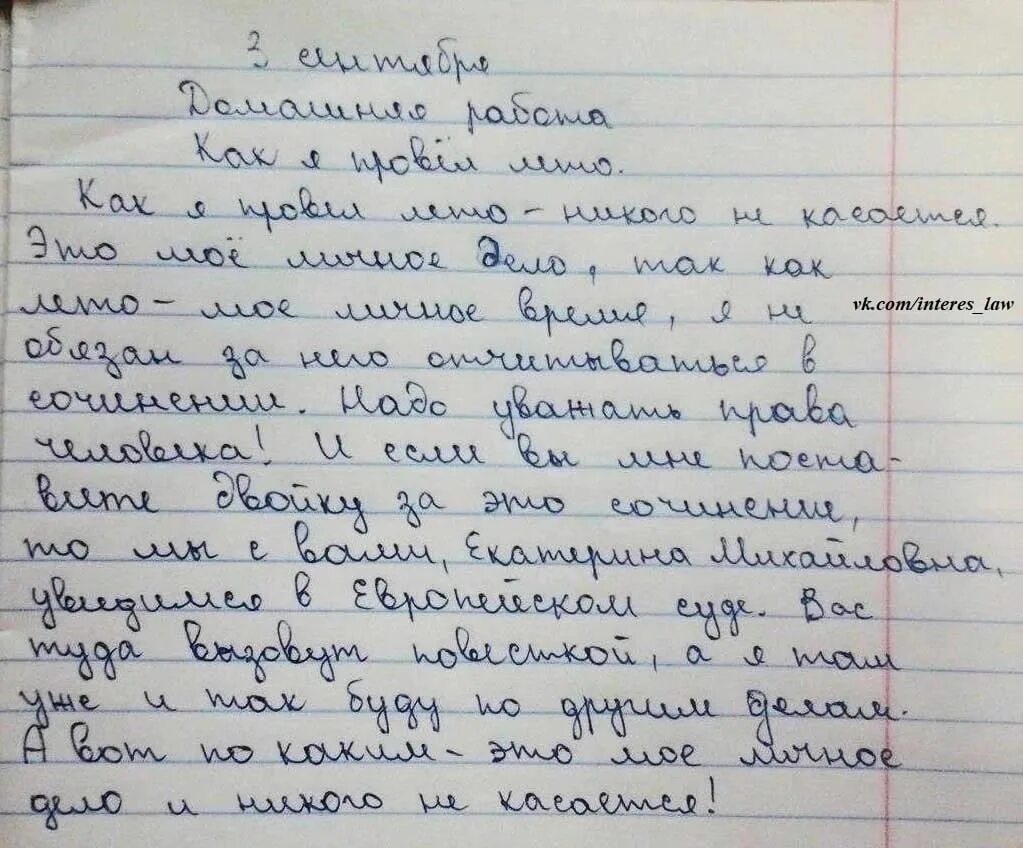 3 сентября
Домашняя работа
Как я провёл лето.
Как я провёл лето – никого не касается.
Это моё личное дело, так как
лето – мое личное время, я не
vk.com/interes_law
обязан за него отчитываться в
сочинении. Надо уважать права
человека! И если вы мне поста-
вите двойку за это сочинение,
то мы с вами, Екатерина Михайловна,
увидимся в Европейском суде. Вас
туда вызовут повесткой, а я там
уже и так буду по другим делам.
А вот по каким – это мое личное
дело и никого не касается!